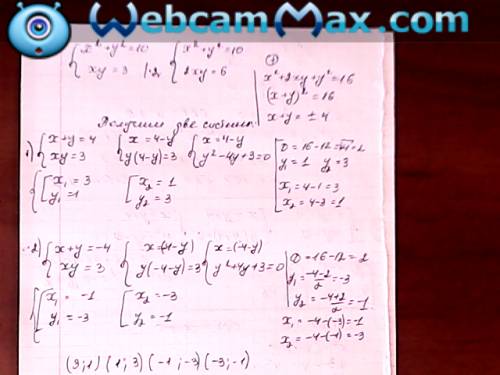 WebcamMax.com
{x²+y²=10 {x²+y²=10
xy=3 |·2 2xy=6
x²+2xy+y²=16
(x+y)²=16
x+y=±4
Получили две системы
1) {x+y=4 {x=4-y {x=4-y
xy=3 y(4-y)=3 y²-4y+3=0
D=16-12=√4=2
y=1 y₂=3
x₁=4-1=3
x₂=4-3=1
{[x₁=3 [x₂=1
y₁=1 y₂=3
2) {x+y=-4 {x=(-4-y) {x=(-4-y)
xy=3 y(-4-y)=3 y²+4y+3=0
D=16-12=2
y₁=-4-2/2=-3
y₂=-4+2/2=-1
x₁=-4-(-3)=-1
x₂=-4-(-1)=-3
{[x₁=-1 [x₂=-3
y₁=-3 y₂=-1
(3;1) (1;3) (-1;-3) (-3;-1)